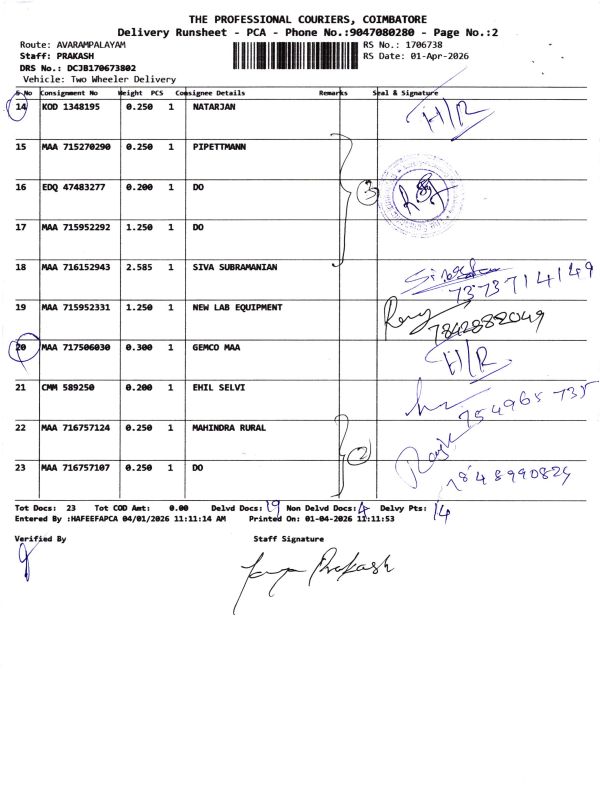 THE PROFESSIONAL COURIERS, COIMBATORE
Delivery Runsheet - PCA - Phone No.:9047080280 - Page No.:2
Route: AVARAMPALAYAM
RS No.: 1706738
Staff: PRAKASH
RS Date: 01-Apr-2026
DRS No.: DCJB170673802
Vehicle: Two Wheeler Delivery
S No Consignment No Weight PCS Consignee Details Remarks Seal & Signature
14 KOD 1348195 0.250 1 NATARJAN H/R
15 MAA 715270290 0.250 1 PIPETTMANN
16 EDQ 47483277 0.200 1 DO 3
17 MAA 715952292 1.250 1 DO
18 MAA 716152943 2.585 1 SIVA SUBRAMANIAN 7373714149
19 MAA 715952331 1.250 1 NEW LAB EQUIPMENT 7842882049
20 MAA 717506030 0.300 1 GEMCO MAA H/R
21 CMM 589250 0.200 1 EHIL SELVI 754965735
22 MAA 716757124 0.250 1 MAHINDRA RURAL 2
23 MAA 716757107 0.250 1 DO 7848990824
Tot Docs: 23 Tot COD Amt: 0.00 Delvd Docs: 19 Non Delvd Docs: 4 Delvy Pts: 14
Entered By :HAFEEFAPCA 04/01/2026 11:11:14 AM Printed On: 01-04-2026 11:11:53
Verified By Staff Signature
Prakash